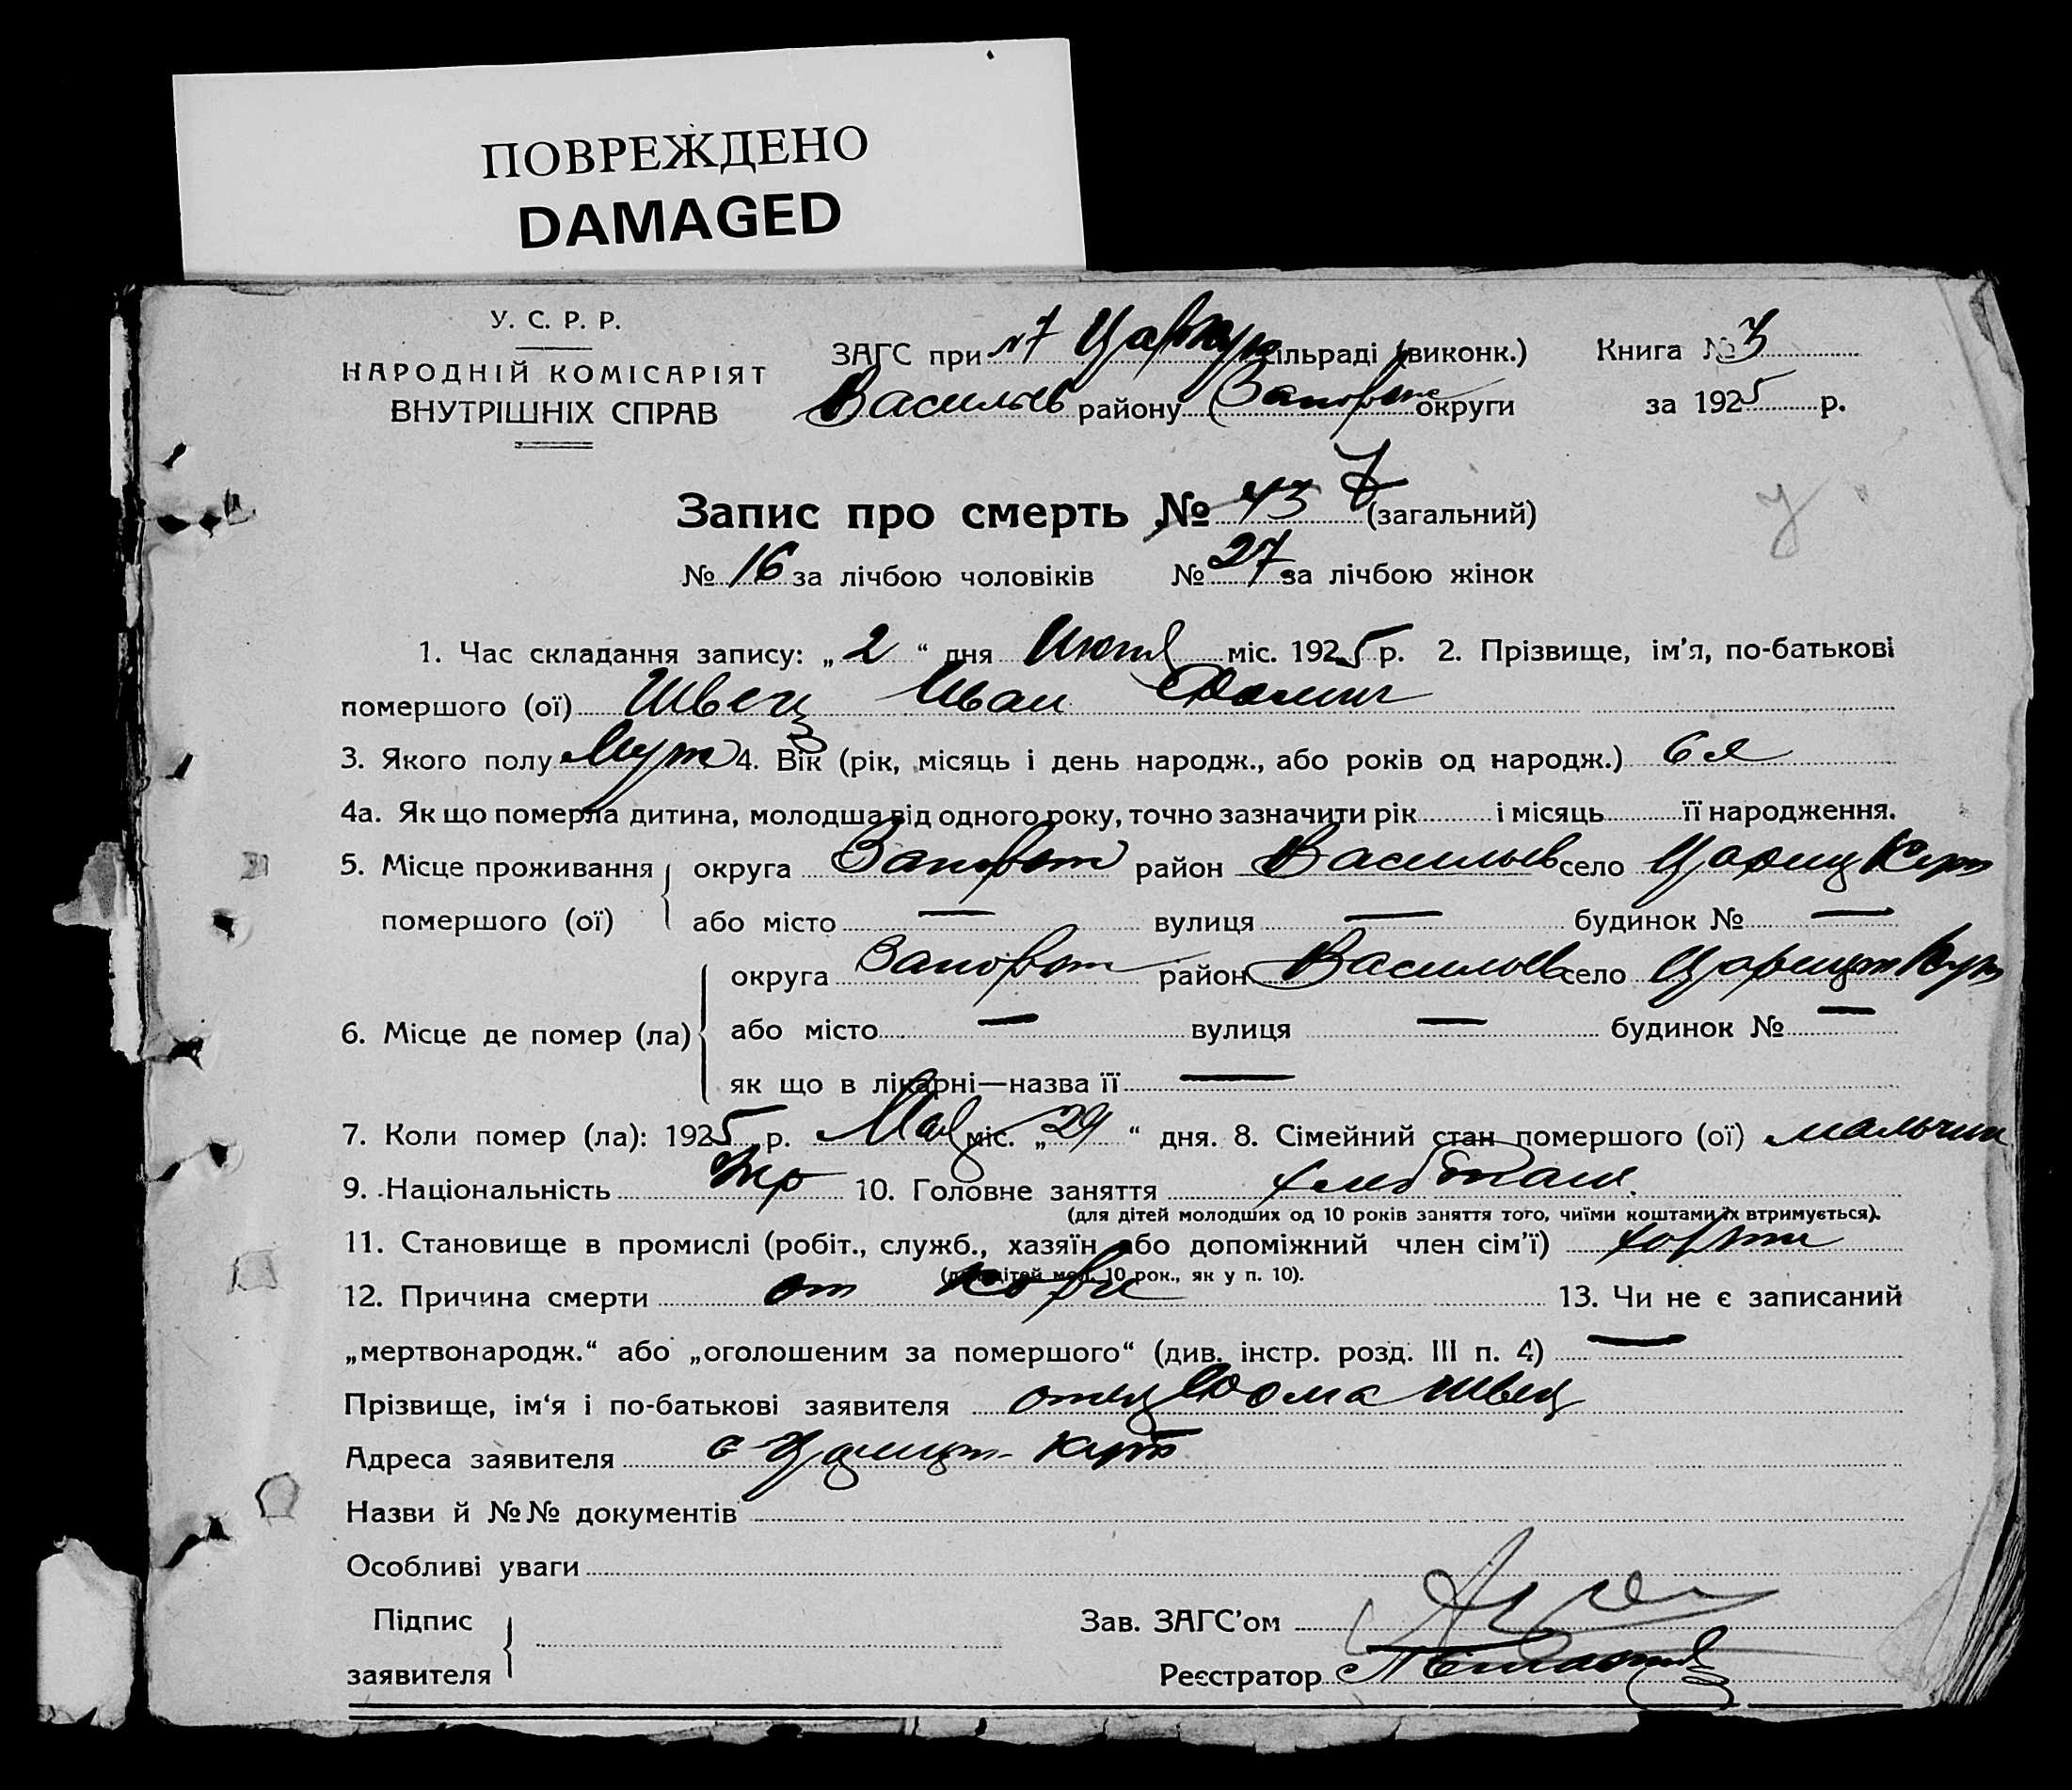 ПОВРЕЖДЕНО
DAMAGED
У. С. Р. Р.
НАРОДНІЙ КОМІСАРІЯТ
ВНУТРІШНІХ СПРАВ
ЗАГС при сільраді (виконк.)
Васильев району Запорож округи
Книга № 3
за 1925 р.
Запис про смерть № 43 (загальний)
№ 16 за лічбою чоловіків № 27 за лічбою жінок
1. Час складання запису: „2“ дня міс. 1925 р. 2. Прізвище, ім'я, по-батькові
помершого (ої) Швец Иван Фомич
3. Якого полу Муж 4. Вік (рік, місяць і день народж., або років од народж.) 6 л
4а. Як що померла дитина, молодша від одного року, точно зазначити рік і місяць її народження.
5. Місце проживання помершого (ої) округа Запорож район Васильев село Цариц Кут
або місто — вулиця — будинок № —
6. Місце де помер (ла) округа Запорож район Васильев село Царицын Кут
або місто — вулиця — будинок № —
як що в лікарні—назва її —
7. Коли помер (ла): 1925 р. Мая міс. „29“ дня. 8. Сімейний стан помершого (ої) мальчик
9. Національність Укр 10. Головне заняття хлебопаш.
(для дітей молодших од 10 років заняття того, чиїми коштами їх втримується).
11. Становище в промислі (робіт., служб., хазяїн або допоміжний член сім'ї)
(для дітей мол. 10 рок., як у п. 10).
12. Причина смерти от кори 13. Чи не є записаний
„мертвонародж.“ або „оголошеним за помершого“ (див. інстр. розд. III п. 4) —
Прізвище, ім'я і по-батькові заявителя отец Фома Швец
Адреса заявителя с Царицын Кут
Назви й №№ документів
Особливі уваги
Підпис заявителя
Зав. ЗАГС'ом
Реєстратор